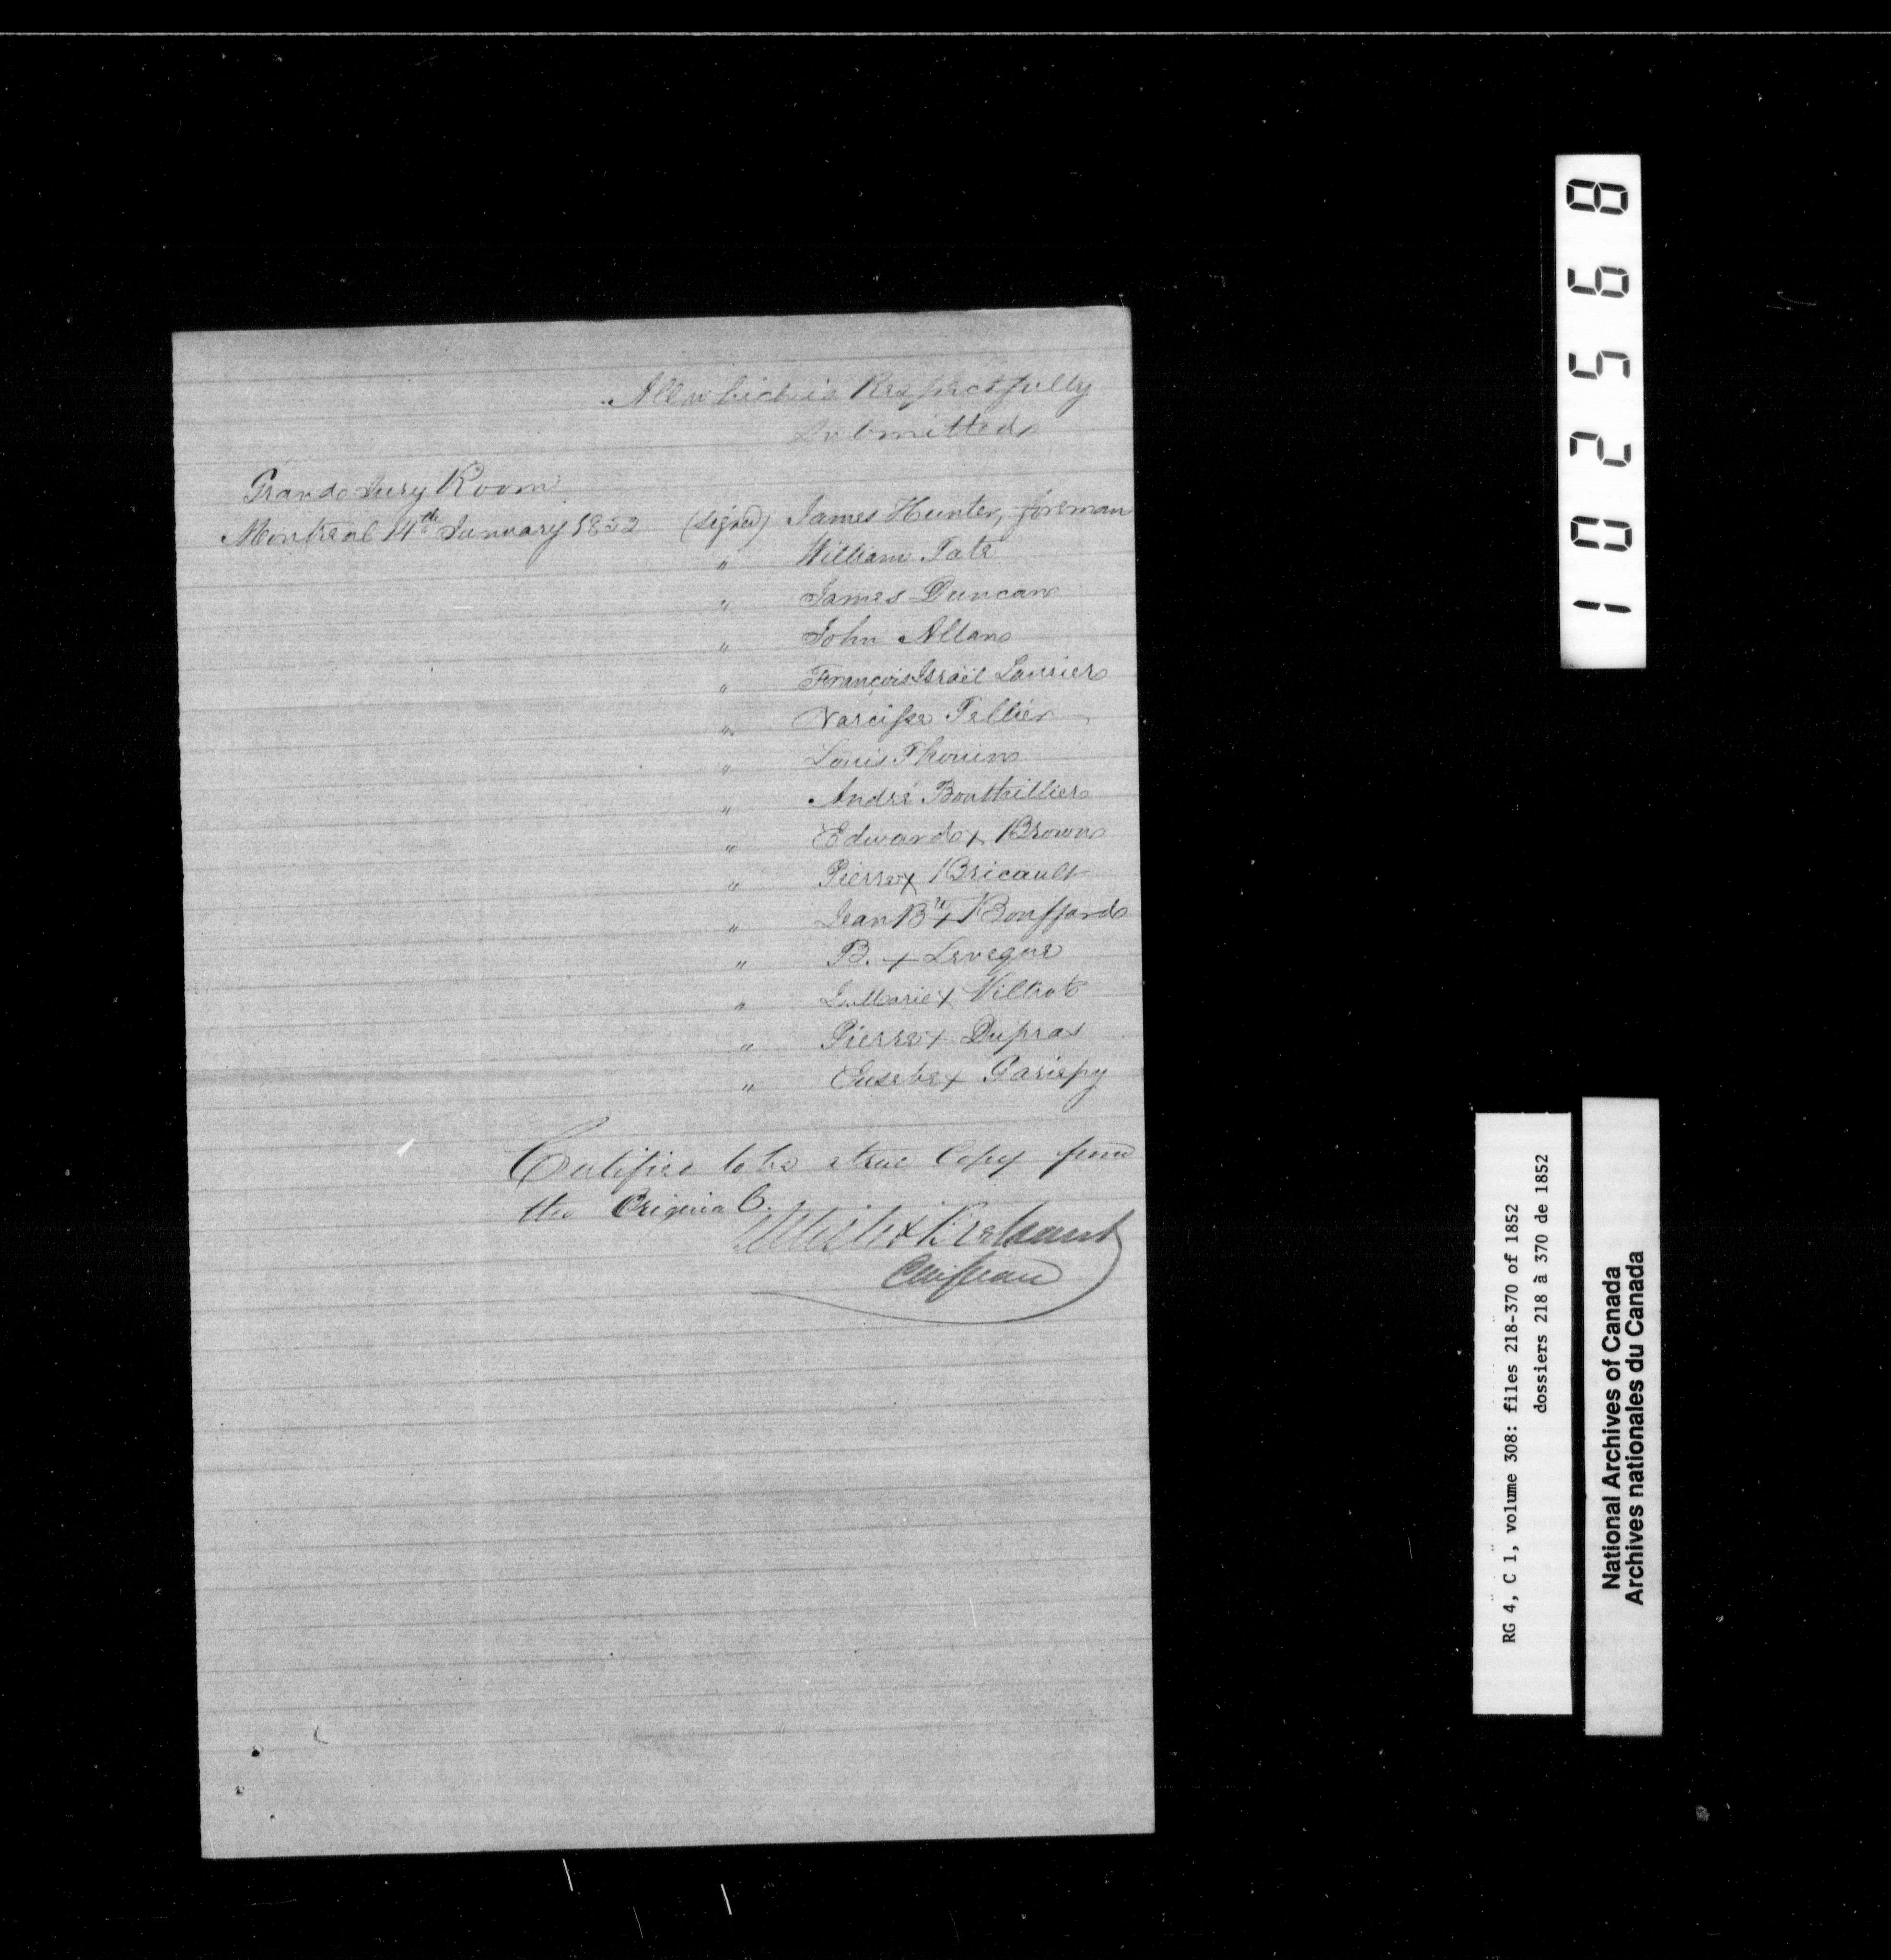 All which is Respectfully
Submitted
Grand Jury Room
Montreal 14th January 1852 (signed) James Hunter, foreman
" William Tate
" James Duncan
" John Allan
" François Israël Laurier
" Narcisse Tellier
" Louis Thouin
" André Bouthillier
" Edward + Brown
" Pierre + Bricault
" Jean Bte + Bouffard
" B. + Leveque
" L. Marie + Viltrot
" Pierre + Dupras
" Eusebe + Gariepy
Certified to be a true Copy from
the Original.
102568
RG 4, C 1, volume 308: files 218-370 of 1852
dossiers 218 à 370 de 1852
National Archives of Canada
Archives nationales du Canada